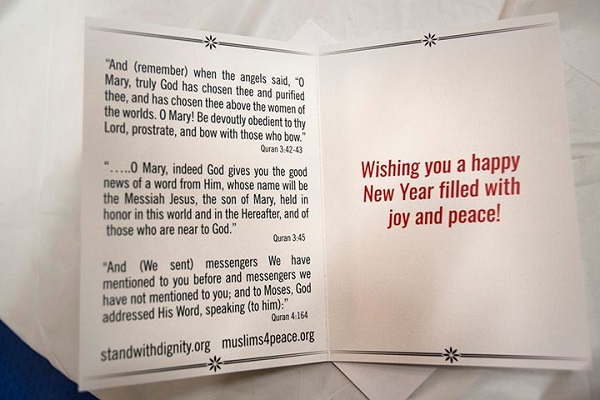 "And (remember) when the angels said, "O
Mary, truly God has chosen thee and purified
thee, and has chosen thee above the women of
the worlds. O Mary! Be devoutly obedient to thy
Lord, prostrate, and bow with those who bow."
Quran 3:42-43
".....O Mary, indeed God gives you the good
news of a word from Him, whose name will be
the Messiah Jesus, the son of Mary, held in
honor in this world and in the Hereafter, and of
those who are near to God."
Quran 3:45
"And (We sent) messengers We have
mentioned to you before and messengers we
have not mentioned to you; and to Moses, God
addressed His Word, speaking (to him):"
Quran 4:164
standwithdignity.org muslims4peace.org
Wishing you a happy
New Year filled with
joy and peace!